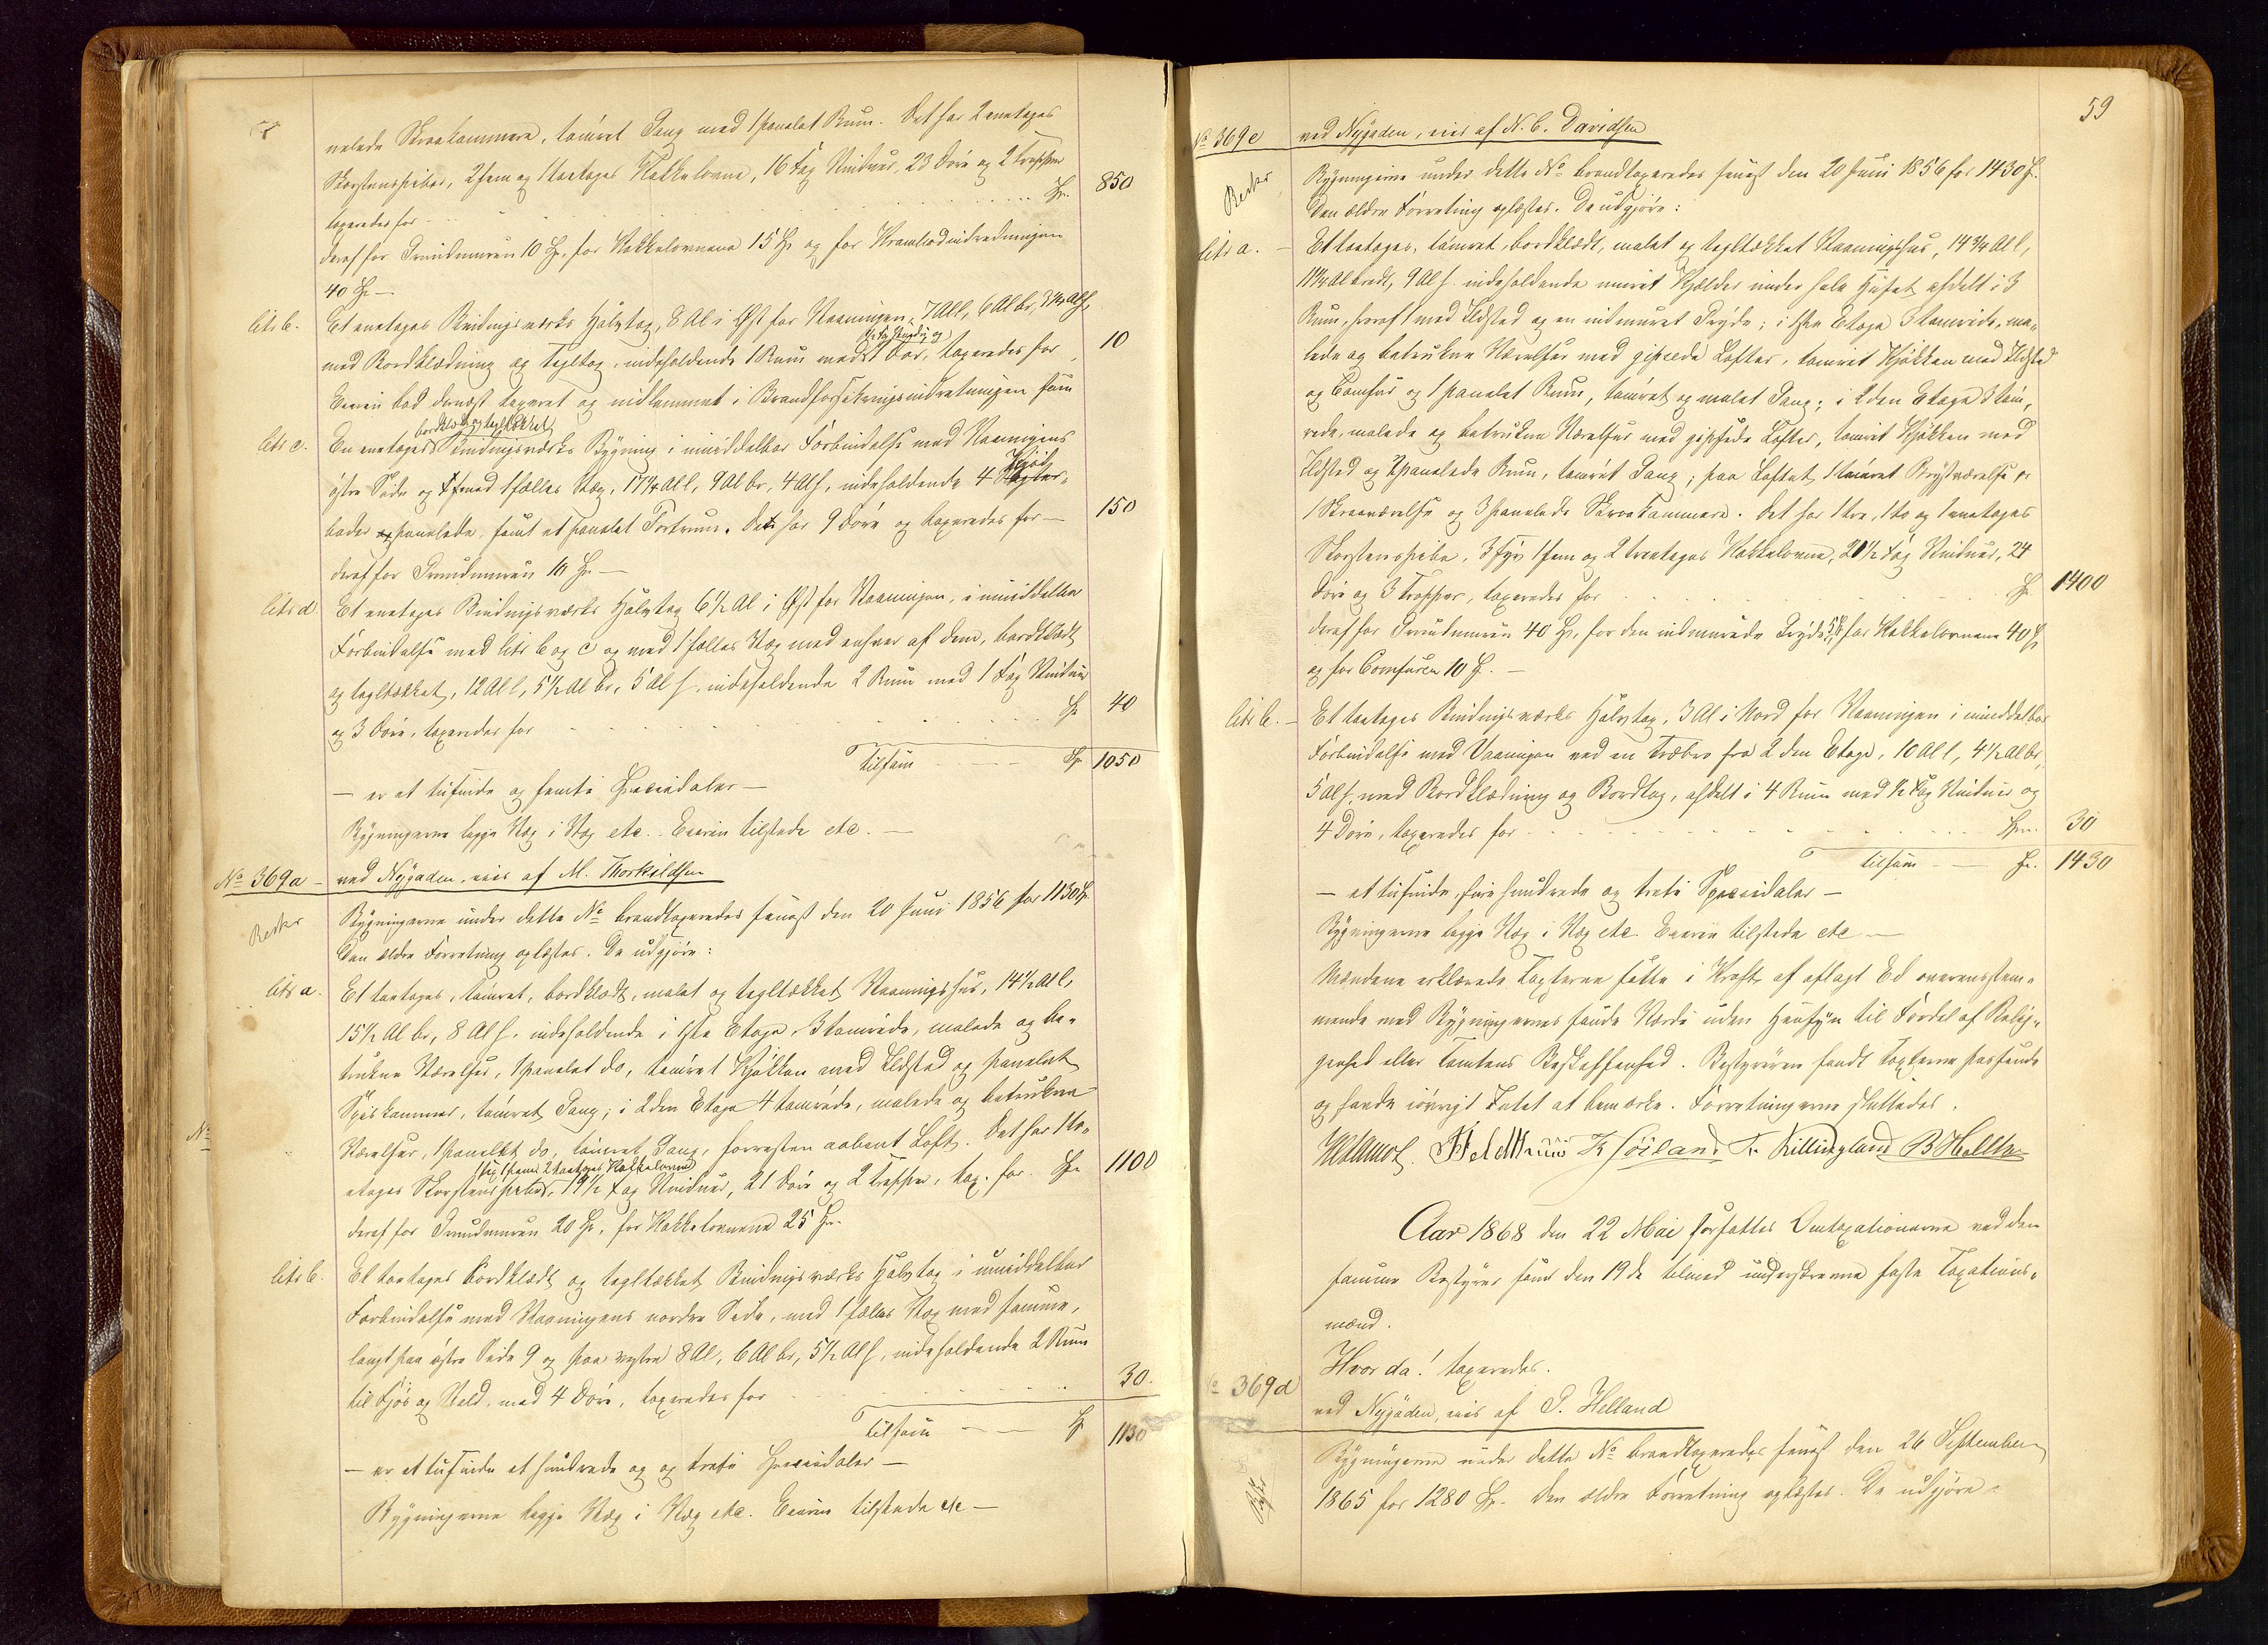 nelede Skraakammere, tømret Gang med 1 panelet Rum. Det har 2 enetages
Skorstenspiber, 2 fem og 1 toetages Kakkelovne, 16 Fag Vinduer, 23 Døre og 2 Trapper
taxeredes for Sp. 850
deraf for Grundmuren 10 Sp., for Kakkelovnene 15 Sp. og for Krambodindredningen
40 Sp. —
litr b. Et enetages Bindingsværks Halvtag, 8 Al i Øst for Vaaningen, 7 Al l, 6 Al br, 3 1/2 Al h,
med Bordklædning og Tegltag, indeholdende 1 Rum med 1 Dør, taxeredes for 10
Eieren bad dernæst taxeret og indlemmet i Brandforsikringsindretningen som
bordklædt og tegltækket
litr c. En enetages Bindingsværks Bygning i umiddelbar Forbindelse med Vaaningens
østre Side og med 1 fælles Væg, 17 1/4 Al l, 9 Al br, 4 Al h, indeholdende 4
boder panelede, samt et panelet Portrum. Det har 9 Døre og taxeredes for — 150
deraf for Grundmuren 10 Sp. —
litr d. Et enetages Bindingsværks Halvtag 6 1/2 Al i Øst for Vaaningen, i umiddelbar
Forbindelse med litr b og c og med 1 fælles Væg med enhver af dem, bordklædt
og tegltækket, 12 Al l, 5 1/2 Al br, 5 Al h. indeholdende 2 Rum med 1 Fag Vinduer
og 3 Døre, taxeredes for Sp. 40
Tilsam Sp 1050
— er et tusinde og femti Speciedaler —
Bygningerne ligge Væg i Væg etc. Eieren tilstede etc. —
No 369a — ved Nygaden, eies af M. Thorkildsen
Bygningerne under dette No brandtaxeredes senest den 20 Juni 1856 for 1130 Sp.
Den ældre Forretning oplæstes. De udgjøre:
litr a. Et toetages, tømret, bordklædt, malet og tegltækket Vaaningshus, 14 1/2 Al l,
15 1/2 Al br, 8 Al h. indeholdende i 1ste Etage 3 tømrede, malede og be-
trukne Værelser, 1 panelet do, tømret Kjøkken med Ildsted og panelet
Spiskammer, tømret Gang; i 2den Etage 4 tømrede, malede og betrukne
Værelser, 1 panelet do, tømret Gang, forresten aabent Loft. Det har 1 to-
etages Skorstenspibe, 19 1/2 Fag Vinduer, 21 Døre og 2 Trapper, tax. for Sp. 1100
deraf for Grundmuren 20 Sp., for Kakkelovnene 25 Sp.
litr b. Et toetages bordklædt og tegltækket Bindingsværks Halvtag i umiddelbar
Forbindelse med Vaaningens nordre Side, med 1 fælles Væg med samme,
langt paa østre Side 9 og paa vestre 8 Al, 6 Al br, 5 1/2 Al h, indeholdende 2 Rum
til Fjøs og Stald, med 4 Døre, taxeredes for 30.
Tilsam Sp 1130
— er et tusinde et hundrede og og treti Speciedaler —
Bygningerne ligge Væg i Væg etc. Eieren tilstede etc —
59
No 369e ved Nygaden, eies af N. C. Davidsen
Bygningerne under dette No brandtaxeredes senest den 20 Juni 1856 for 1430 Sp.
Den ældre Forretning oplæstes. De udgjøre:
litr a. — Et toetages, tømret, bordklædt, malet og tegltækket Vaaningshus, 14 3/4 Al l,
11 3/4 Al bredt, 9 Al h. indeholdende muret Kjælder under hele Huset afdelt i 3
Rum, hvoraf 1 med Ildsted og en indmuret Gryde; i 1ste Etage 3 tømrede, ma-
lede og betrukne Værelser med gipsede Lofter, tømret Kjøkken med Ildsted
og Comfur og 1 panelet Rum, tømret og malet Gang; i 2den Etage 3 tøm-
rede, malede og betrukne Værelser med gipsede Lofter, tømret Kjøkken med
Ildsted og 2 panelede Rum, tømret Gang; paa Loftet 1 tømret Kvistværelse og
1 Skraaværelse og 3 panelede Skraakammere. Det har 1 tre, 1 to og 1 enetages
Skorstenspibe, 3 fyr, 1 fem og 2 treetages Kakkelovne, 20 1/2 Fag Vinduer, 24
Døre og 3 Trapper, taxeredes for Sp. 1400
deraf for Grundmuren 40 Sp., for den indmurede Gryde 5 Sp., for Kakkelovnene 40 Sp
og for Comfuren 10 Sp. —
litr b. — Et toetages Bindingsværks Halvtag, 3 Al i Nord for Vaaningen i umiddelbar
Forbindelse med Vaaningen ved en Træbro fra 2den Etage, 10 Al l, 4 1/2 Al br,
5 Al h, med Bordklædning og Bordtag, afdelt i 4 Rum med 1/2 Fag Vinduer og
4 Døre, taxeredes for 30
Tilsam Sp. 1430
— et tusinde, fire hundrede og treti Speciedaler —
Bygningerne ligge Væg i Væg etc. Eieren tilstede etc —
Mændene erklærede Taxterne satte i Kraft af aflagt Ed overensstem-
mende med Bygningernes sande Værdi uden Hensyn til Fordel af Belig-
genhed eller Tomtens Beskaffenhed. Bestyreren fandt Taxterne passende
og havde iøvrigt Intet at bemærke. Forretningerne sluttedes.
Killingland
Aar 1868 den 22 Mai forsattes Omtaxationerne ved den
samme Bestyrer som den 19de tilmed underskrevne faste Taxations-
mænd.
Hvor da! taxeredes.
369d ved Nygaden, eies af S. Helland
Bygningerne under dette No brandtaxeredes senest den 26 September
1865 for 1280 Sp. Den ældre Forretning oplæstes. De udgjøre: